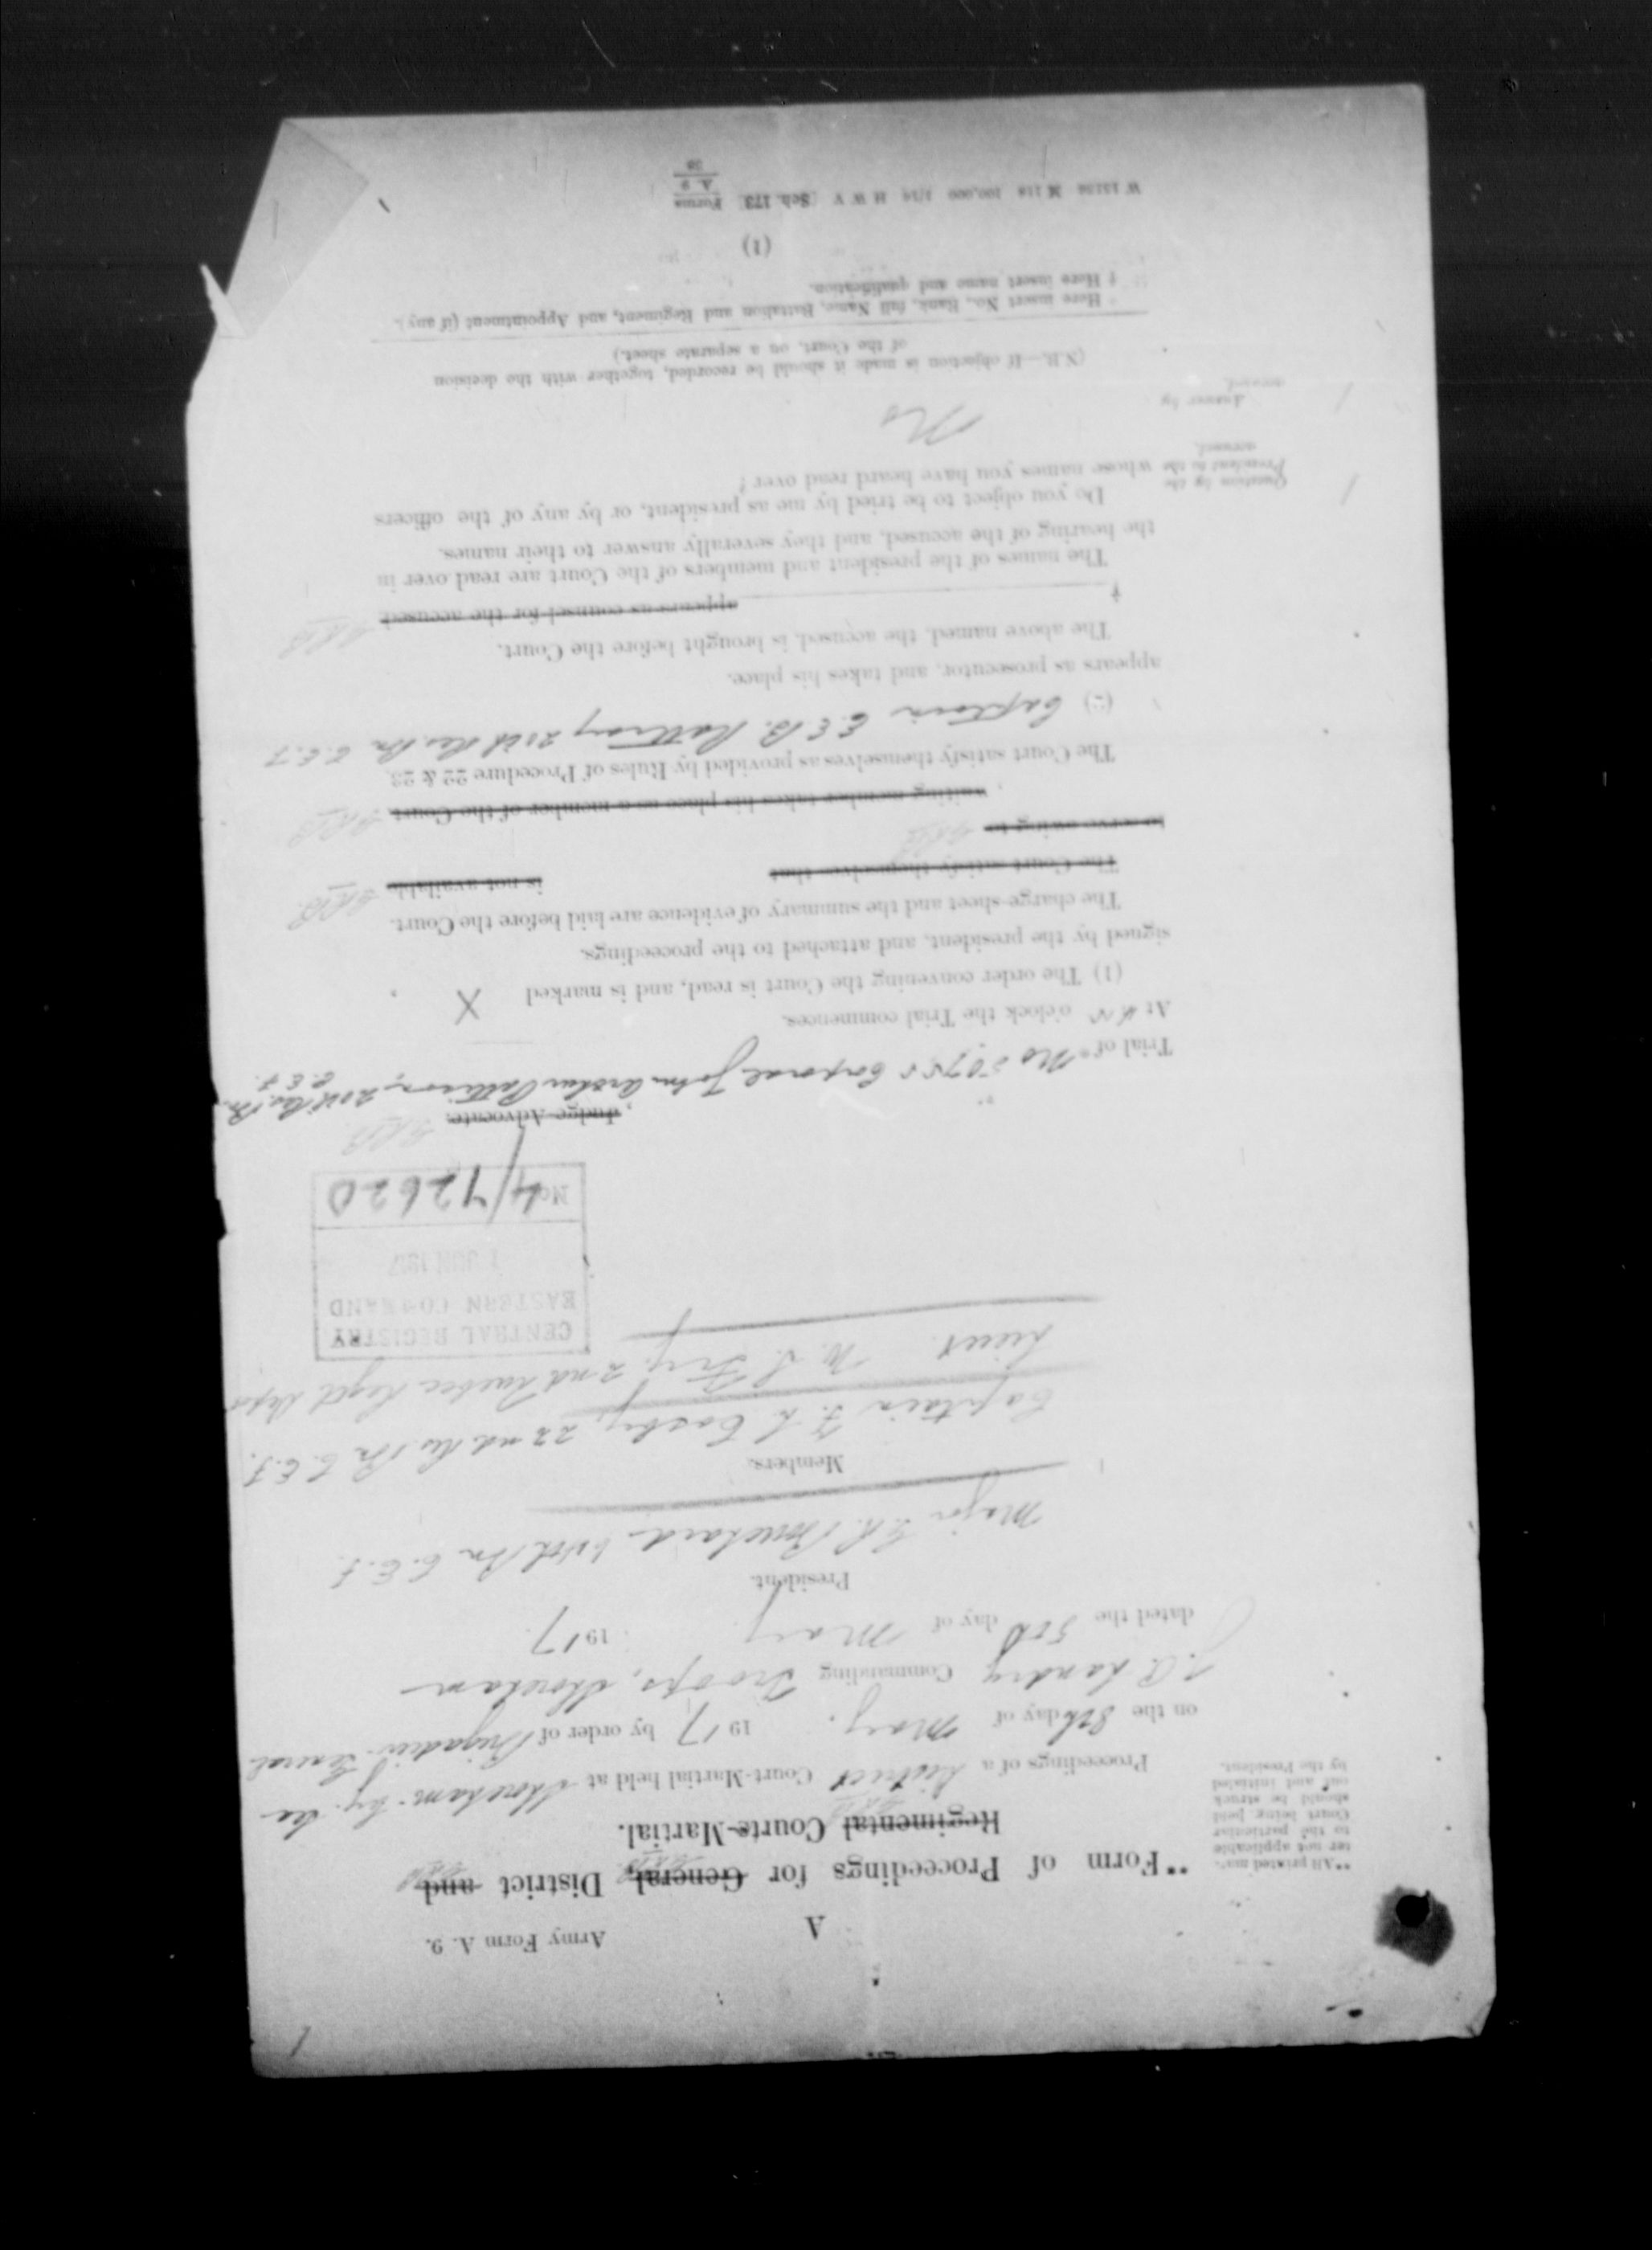 1
A
Army Form A. 9.
**Form of Proceedings for General, District and
Regimental Courts-Martial.
**All printed mat-
ter not applicable
to the particular
Court being held
should be struck
out and initialed
by the President.
Proceedings of a District Court-Martial held at Shoreham-by-Sea
on the 8th day of May. 1917 by order of Brigadier General
J. P. Landry Commanding Troops, Shoreham
dated the 5th day of May 1917.
President.
Major Bn C.E.F.
Members.
Captain F. L. 22nd Res Bn C.E.F.
Lieut W. S. Fry. 2nd Quebec Regtl Depot
CENTRAL REGISTRY
EASTERN COMMAND
1 JUN 1917
No. 4/72620
, Judge-Advocate.
Trial of * No Corporal John Pattison, 20th Res. Bn.
C.E.F.
At o'clock the Trial commences.
(1) The order convening the Court is read, and is marked X ,
signed by the president, and attached to the proceedings.
The charge-sheet and the summary of evidence are laid before the Court.
The Court satisfy themselves that is not available
to serve owing to
waiting member takes his place as a member of the Court.
The Court satisfy themselves as provided by Rules of Procedure 22 & 23.
(2) Captain E. E. B. Rattray 20th Res. Bn C.E.F
appears as prosecutor, and takes his place.
The above named, the accused, is brought before the Court.
† appears as counsel for the accused.
The names of the president and members of the Court are read over in
the hearing of the accused, and they severally answer to their names.
Do you object to be tried by me as president, or by any of the officers
whose names you have heard read over?
Question by the
President to the
accused.
No
Answer by
accused.
(N.B.—If objection is made it should be recorded, together with the decision
of the Court, on a separate sheet.)
* Here insert No., Rank, full Name, Battalion and Regiment, and Appointment (if any).
† Here insert name and qualification.
(1)
100,000 1/16 H W V (Sch. 173) Forms
A. 9